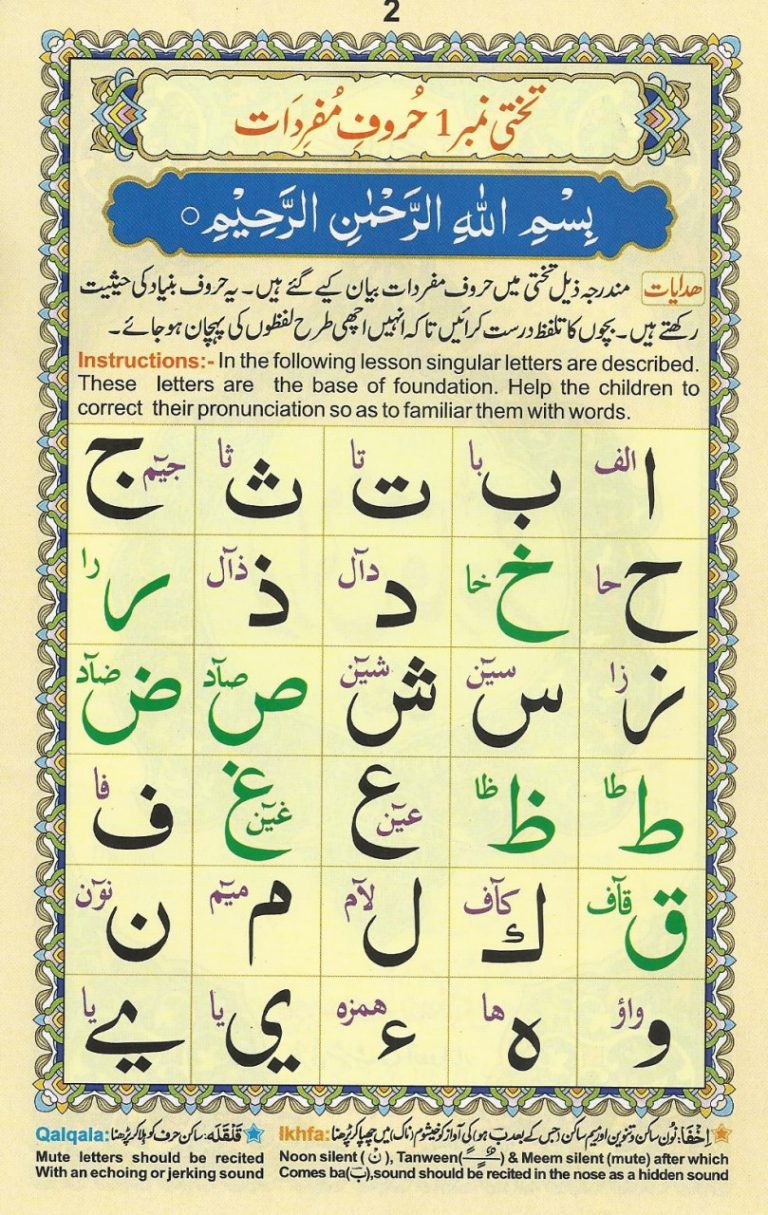 2
تختی نمبر 1 حُروفِ مُفرِدَات
بِسْمِ اللهِ الرَّحْمٰنِ الرَّحِيْمِ ○
ھدایات مندرجہ ذیل تختی میں حروف مفردات بیان کیے گئے ہیں۔ یہ حروف بنیاد کی حیثیت
رکھتے ہیں۔ بچوں کا تلفظ درست کرائیں تاکہ انہیں اچھی طرح لفظوں کی پہچان ہو جائے۔
Instructions:- In the following lesson singular letters are described.
These letters are the base of foundation. Help the children to
correct their pronunciation so as to familiar them with words.
ا الف ب با ت تا ث ثا ج جیٓم
ح حا خ خا د دآل ذ ذآل ر را
ز زا س سیٓن ش شیٓن ص صآد ض ضآد
ط طا ظ ظا ع عیٓن غ غیٓن ف فا
ق قآف ك کآف ل لآم م میٓم ن نوٓن
و واؤ ه ها ء همزه ي يا ے يا
اِخْفَا: نُون ساکن و تنوین اور میم ساکن (جس کے بعد ب ہو) کی آواز کو خیشوم (ناک) میں چھپا کر پڑھنا Ikhfa:
قَلْقَلَه: ساکن حرف کو ہلا کر پڑھنا Qalqala:
Mute letters should be recited
With an echoing or jerking sound
Noon silent (نْ), Tanween(ـًـٍـٌ) & Meem silent (mute) after which
Comes ba(ب),sound should be recited in the nose as a hidden sound